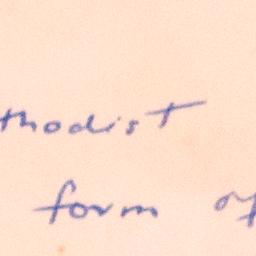 thodist
form of